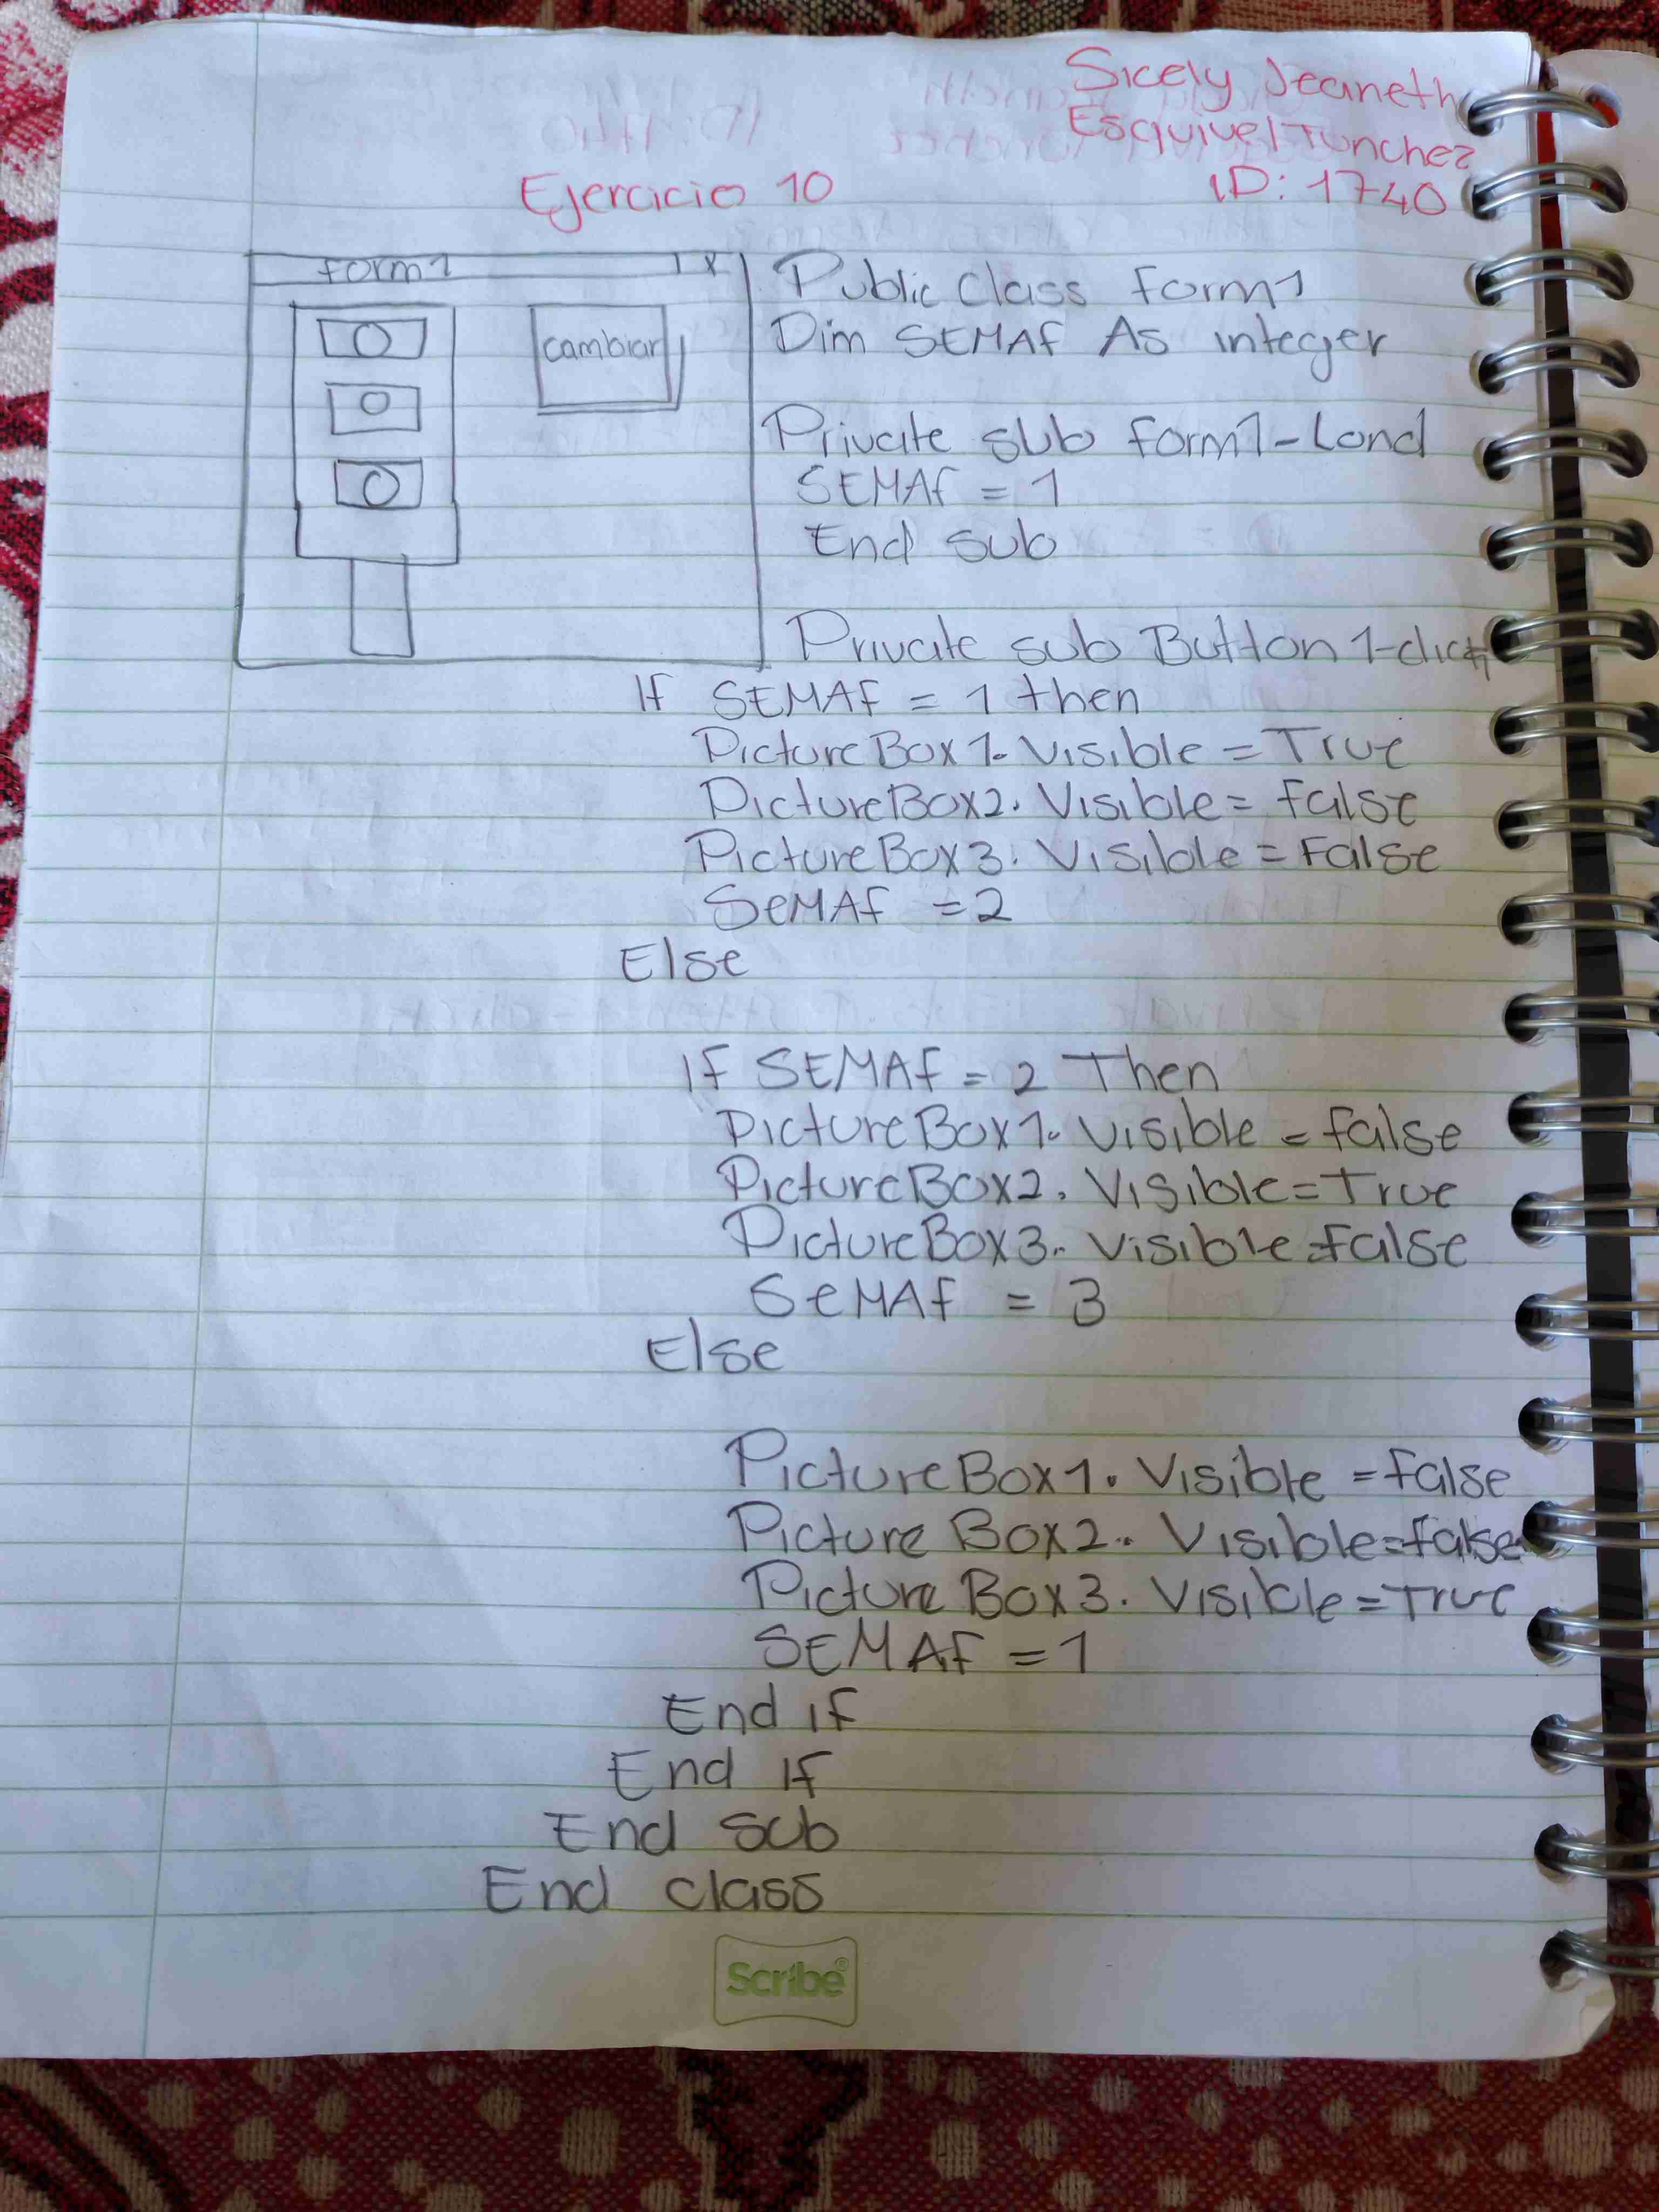 Sicely Jeaneth
Esquivel Tunchez
ID: 1740
Ejercicio 10
form1 X
cambiar
Public Class form1
Dim SEMAf As integer
Private sub form1-Lond
SEMAf = 1
End sub
Private sub Button 1-click
If SEMAf = 1 then
PictureBox1. Visible = True
PictureBox2. Visible = false
PictureBox3. Visible = False
SeMAf = 2
Else
If SEMAf = 2 Then
PictureBox1. Visible = false
PictureBox2. Visible = True
PictureBox3. Visible = false
SeMAf = 3
Else
PictureBox1. Visible = false
Picture Box2. Visible = false
Picture Box3. Visible = True
SEMAf = 1
End if
End If
End sub
End class
Scribe®